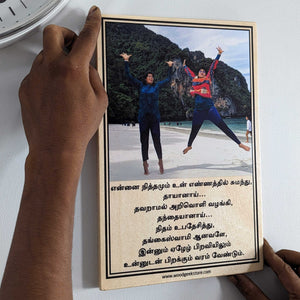 என்னை நித்தமும் உன் எண்ணத்தில் சுமந்து,
தாயானாய்...
தவறாமல் அறிவொளி வழங்கி,
தந்தையானாய்...
நிதம் உபதேசித்து,
தங்கைஸ்வாமி ஆனவளே,
இன்னும் ஏழேழ் பிறவியிலும்
உன்னுடன் பிறக்கும் வரம் வேண்டும்.
www.woodgeekstore.com